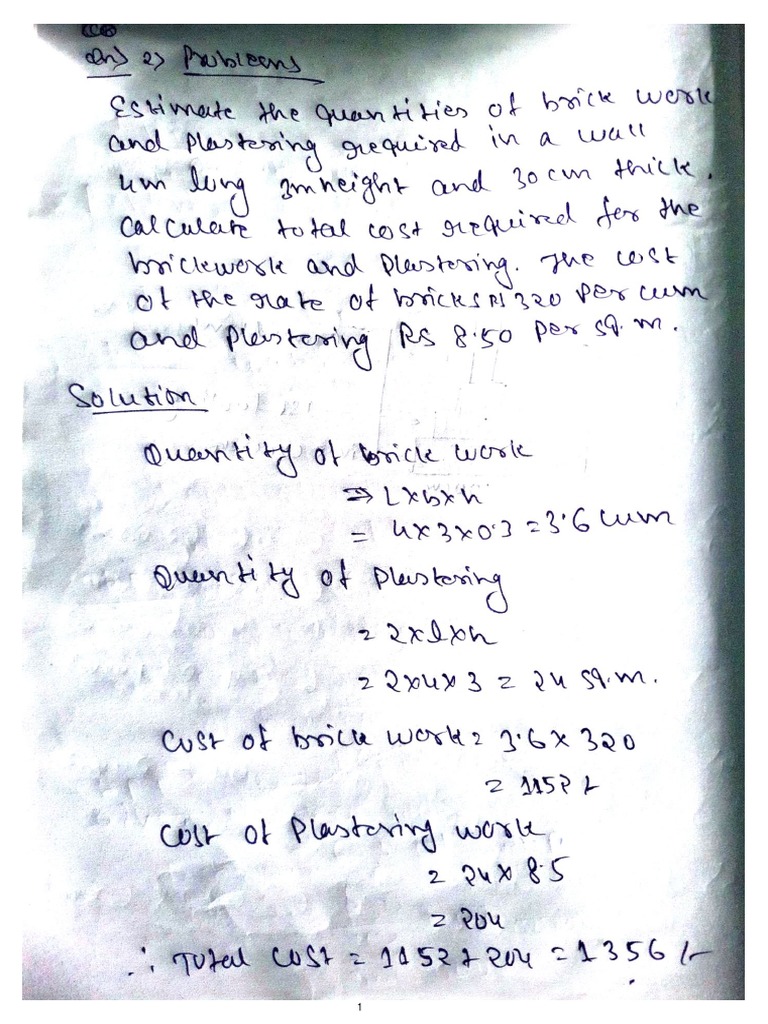 Ans) 2) Problems
Estimate the quantities of brick work
and plastering required in a wall
4m long 3m height and 30 cm thick.
Calculate total cost required for the
brickwork and plastering. The cost
of the rate of bricks Rs 320 per cum
and plastering RS 8.50 per sq.m.
Solution
Quantity of brick work
⇒ L×b×h
= 4×3×0.3 = 3.6 cum
Quantity of plastering
= 2×l×h
= 2×4×3 = 24 sq.m.
Cost of brick work = 3.6 × 320
= 1152
Cost of plastering work
= 24 × 8.5
= 204
∴ Total cost = 1152 + 204 = 1356 /-
1